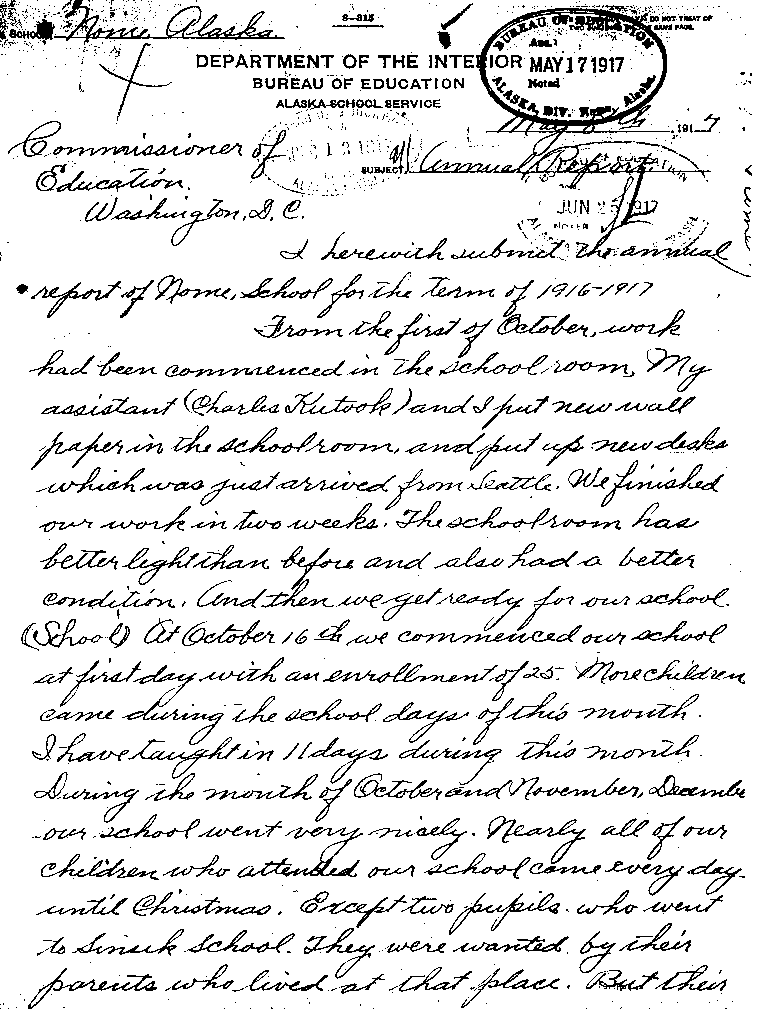 SCHOOL Nome, Alaska.
8-315
DO NOT TREAT OF
SAME PAGE.
DEPARTMENT OF THE INTERIOR
BUREAU OF EDUCATION
ALASKA SCHOOL SERVICE
BUREAU OF EDUCATION
MAY 17 1917
Noted
ALASKA, DIV. Nome, Alaska.
May 8th, 1917
Commissioner of
Education.
Washington, D. C.
SUBJECT Annual Report.
JUN 25 1917
NOTED
I herewith submit the annual
report of Nome, School for the term of 1916-1917
From the first of October, work
had been commenced in the school room, My
assistant (Charles Kutook) and I put new wall
paper in the schoolroom, and put up new desks
which was just arrived from Seattle. We finished
our work in two weeks. The schoolroom has
better light than before and also had a better
condition. And then we get ready for our school.
(School) At October 16th we commenced our school
at first day with an enrollment of 25. More children
came during the school days of this month.
I have taught in 11 days during this month.
During the month of October and November, Decembe
our school went very nicely. Nearly all of our
children who attended our school come every day
until Christmas. Except two pupils who went
to Sinuk School. They were wanted by their
parents who lived at that place. But their